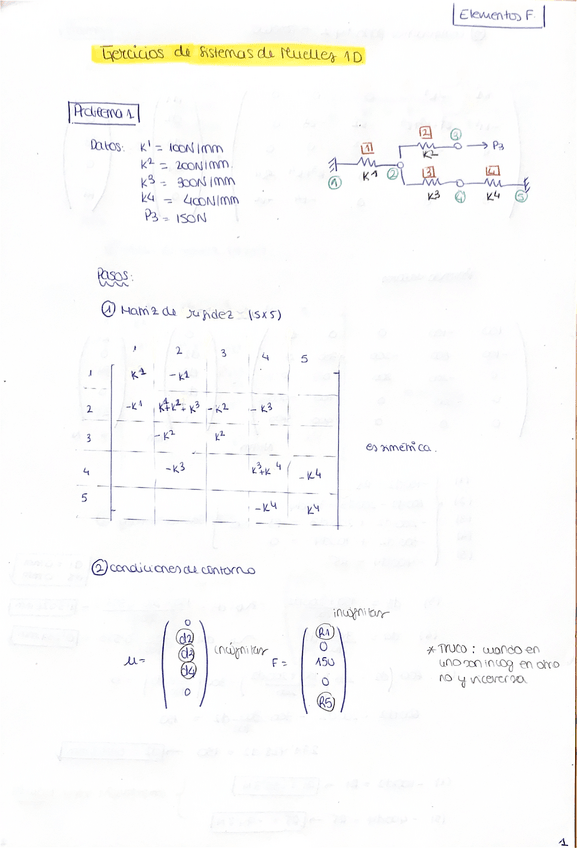 Elementos F.
Ejercicios de Sistemas de Muelles 1D
Problema 1
Datos: K¹ = 100N/mm
K² = 200N/mm.
K³ = 300N/mm
K4 = 400N/mm
P3 = 150N
1 2 3 4
1 2 3 4 5
K1 K2 K3 K4
P3
Pasos:
① Matriz de rigidez = (5x5)
1 2 3 4 5
1 K1 -K1
2 -K1 K1+K2+K3 -K2 -K3
3 -K2 K2
4 -K3 K3+K4 -K4
5 -K4 K4
es simétrica.
② condiciones de contorno
incógnitas
u = 0 d2 d3 d4 0 incógnitas
F = R1 0 150 0 R5
* TRUCO: cuando en
uno son incóg en otro
no y viceversa
1